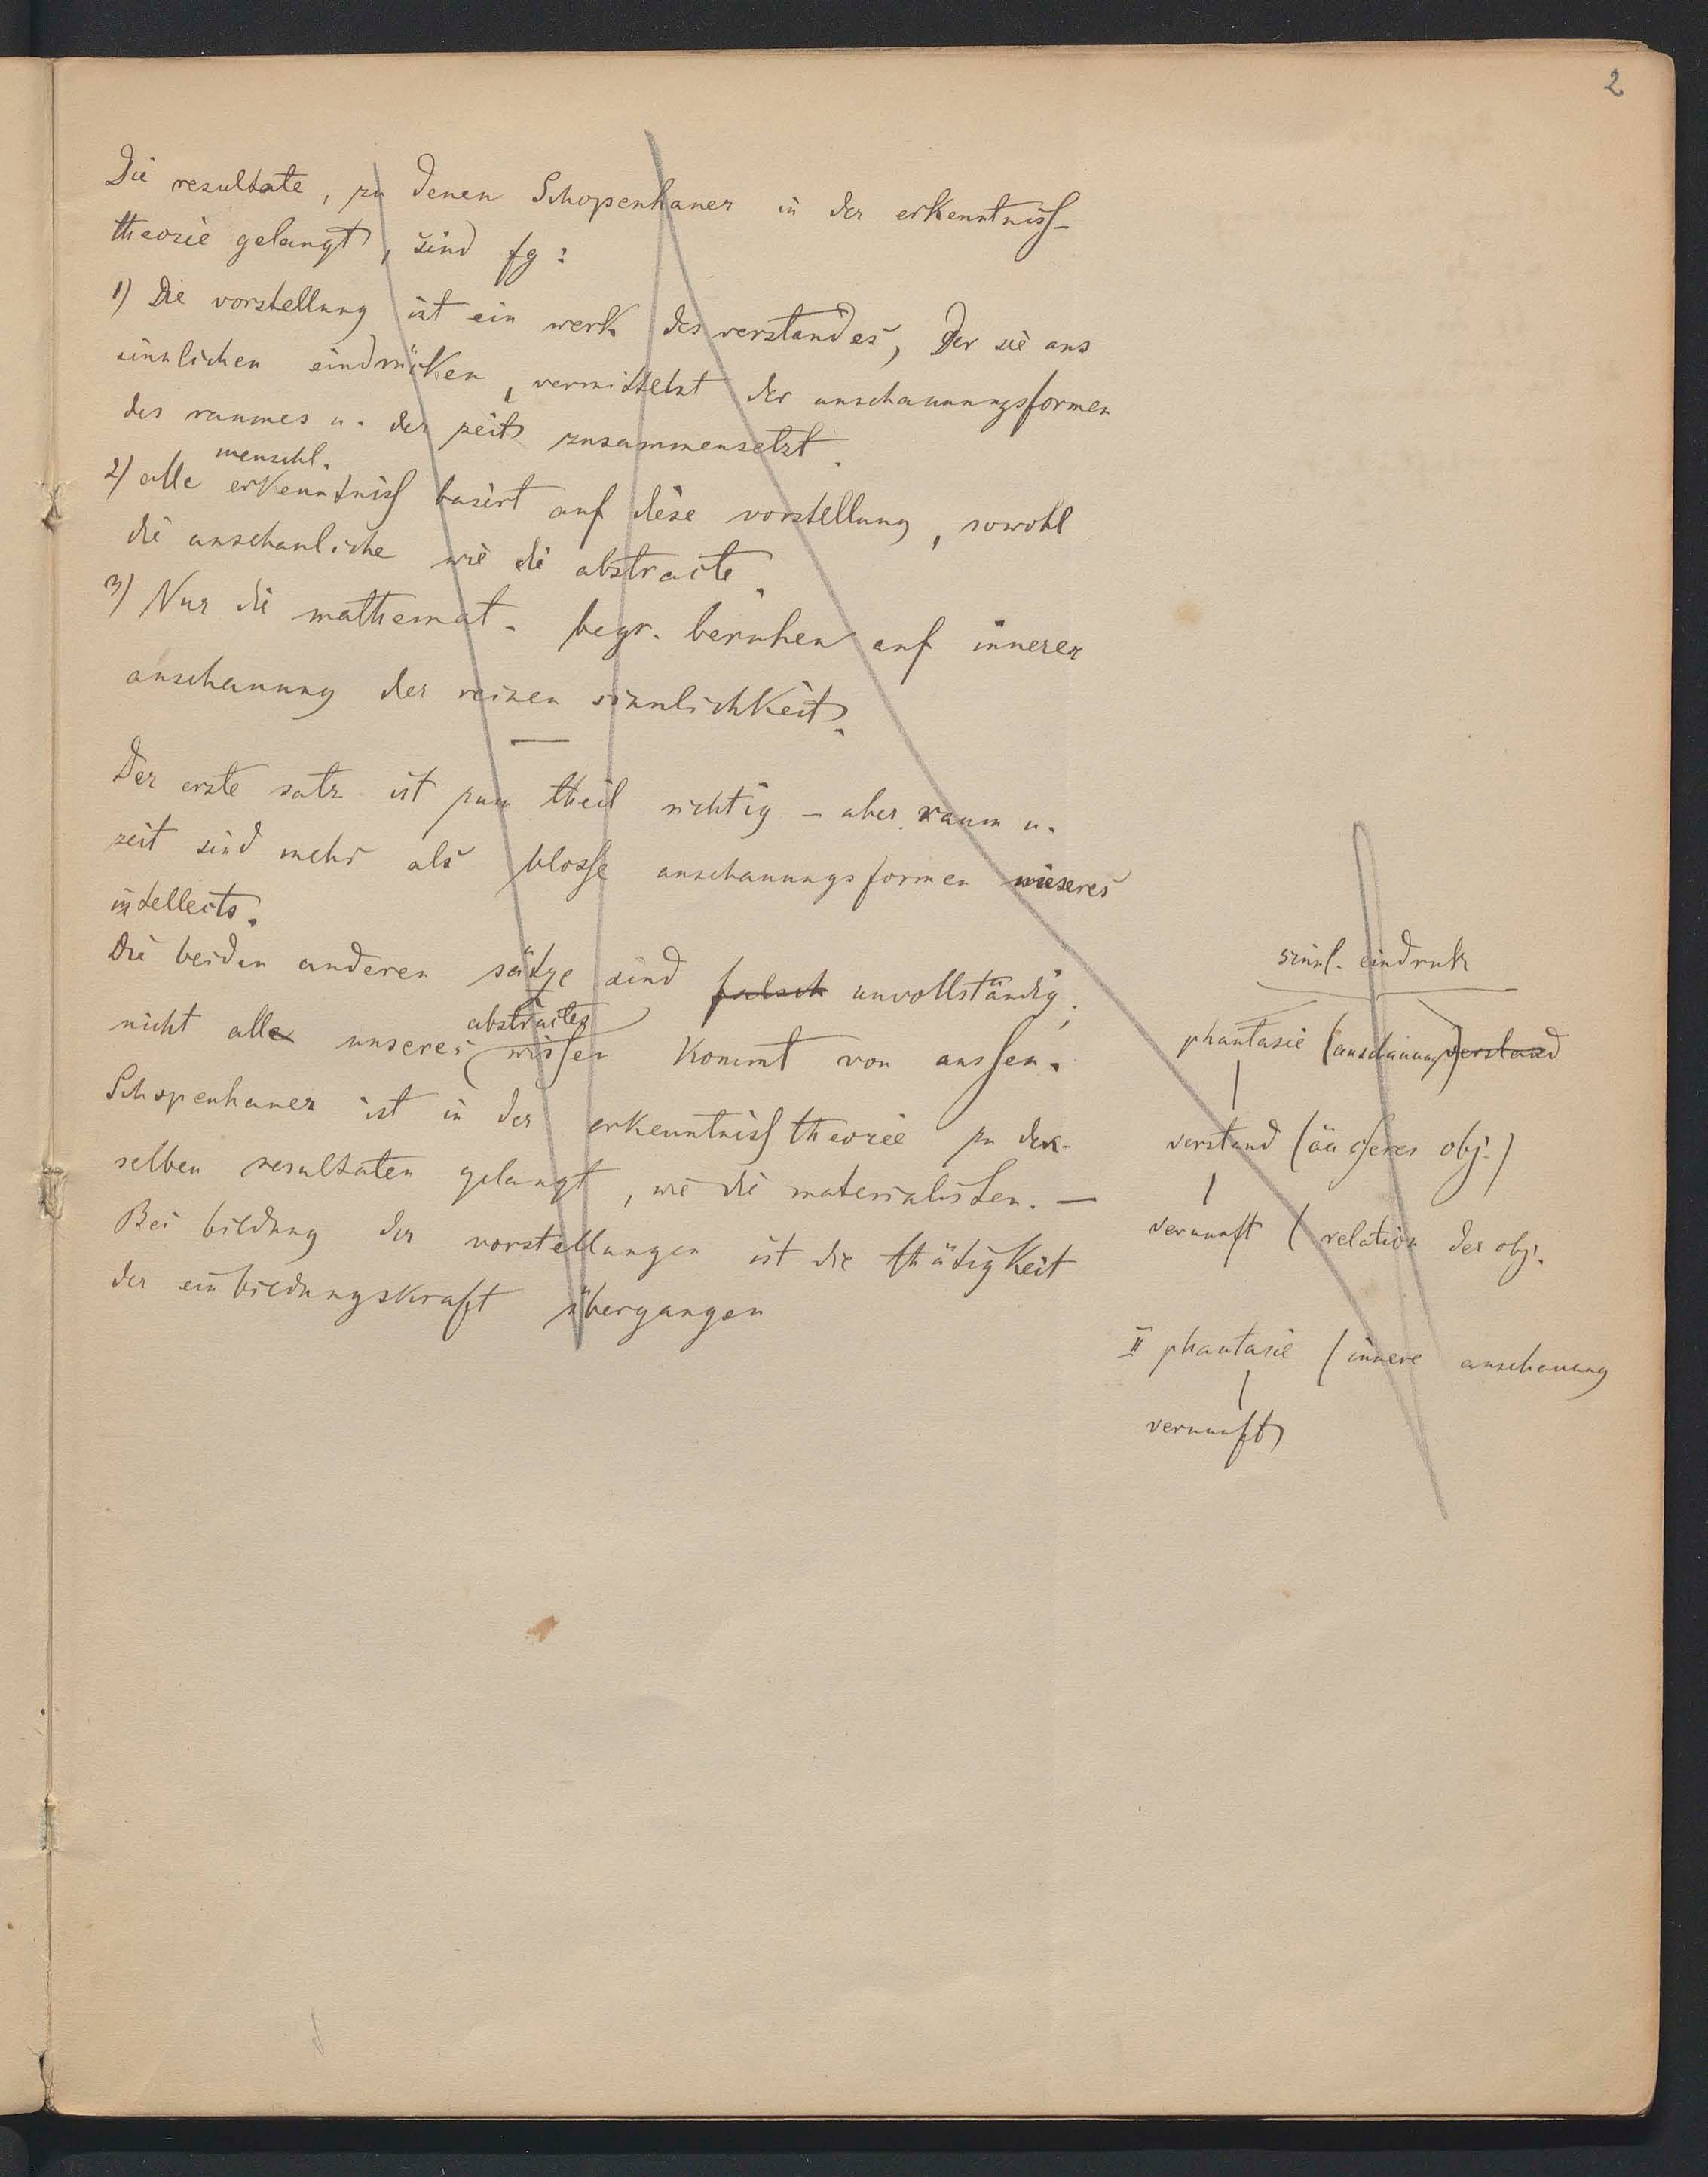 2
Die resultate, zu denen Schopenhauer in der erkenntniss-
theorie gelangt, sind fg:
1) Die vorstellung ist ein werk des verstandes, der sie aus
sinnlichen eindrücken, vermittelst der anschauungsformen
des raumes u. der zeit zusammensetzt.
menschl.
2) alle erkenntniss basirt auf diese vorstellung, sowohl
die anschauliche wie die abstracte.
3) Nur die mathemat. begr. beruhen auf innerer
anschauung der reinen sinnlichkeit.
—
Der erste satz ist zum theil richtig – aber raum u.
zeit sind mehr als blosse anschauungsformen unseres
intellects.
Die beiden anderen sätze sind falsch unvollständig;
abstractes
nicht alle unseres wissen kommt von aussen.
Schopenhauer ist in der erkenntnisstheorie zu den-
selben resultaten gelangt, wie die materialisten. —
Bei bildung der vorstellungen ist die thätigkeit
der einbildungskraft übergangen
sinnl. eindruk
phantasie (anschauung) verstand
verstand (äusseres obj.)
vernunft (relation der obj.
II phantasie (innere anschauung
vernunft